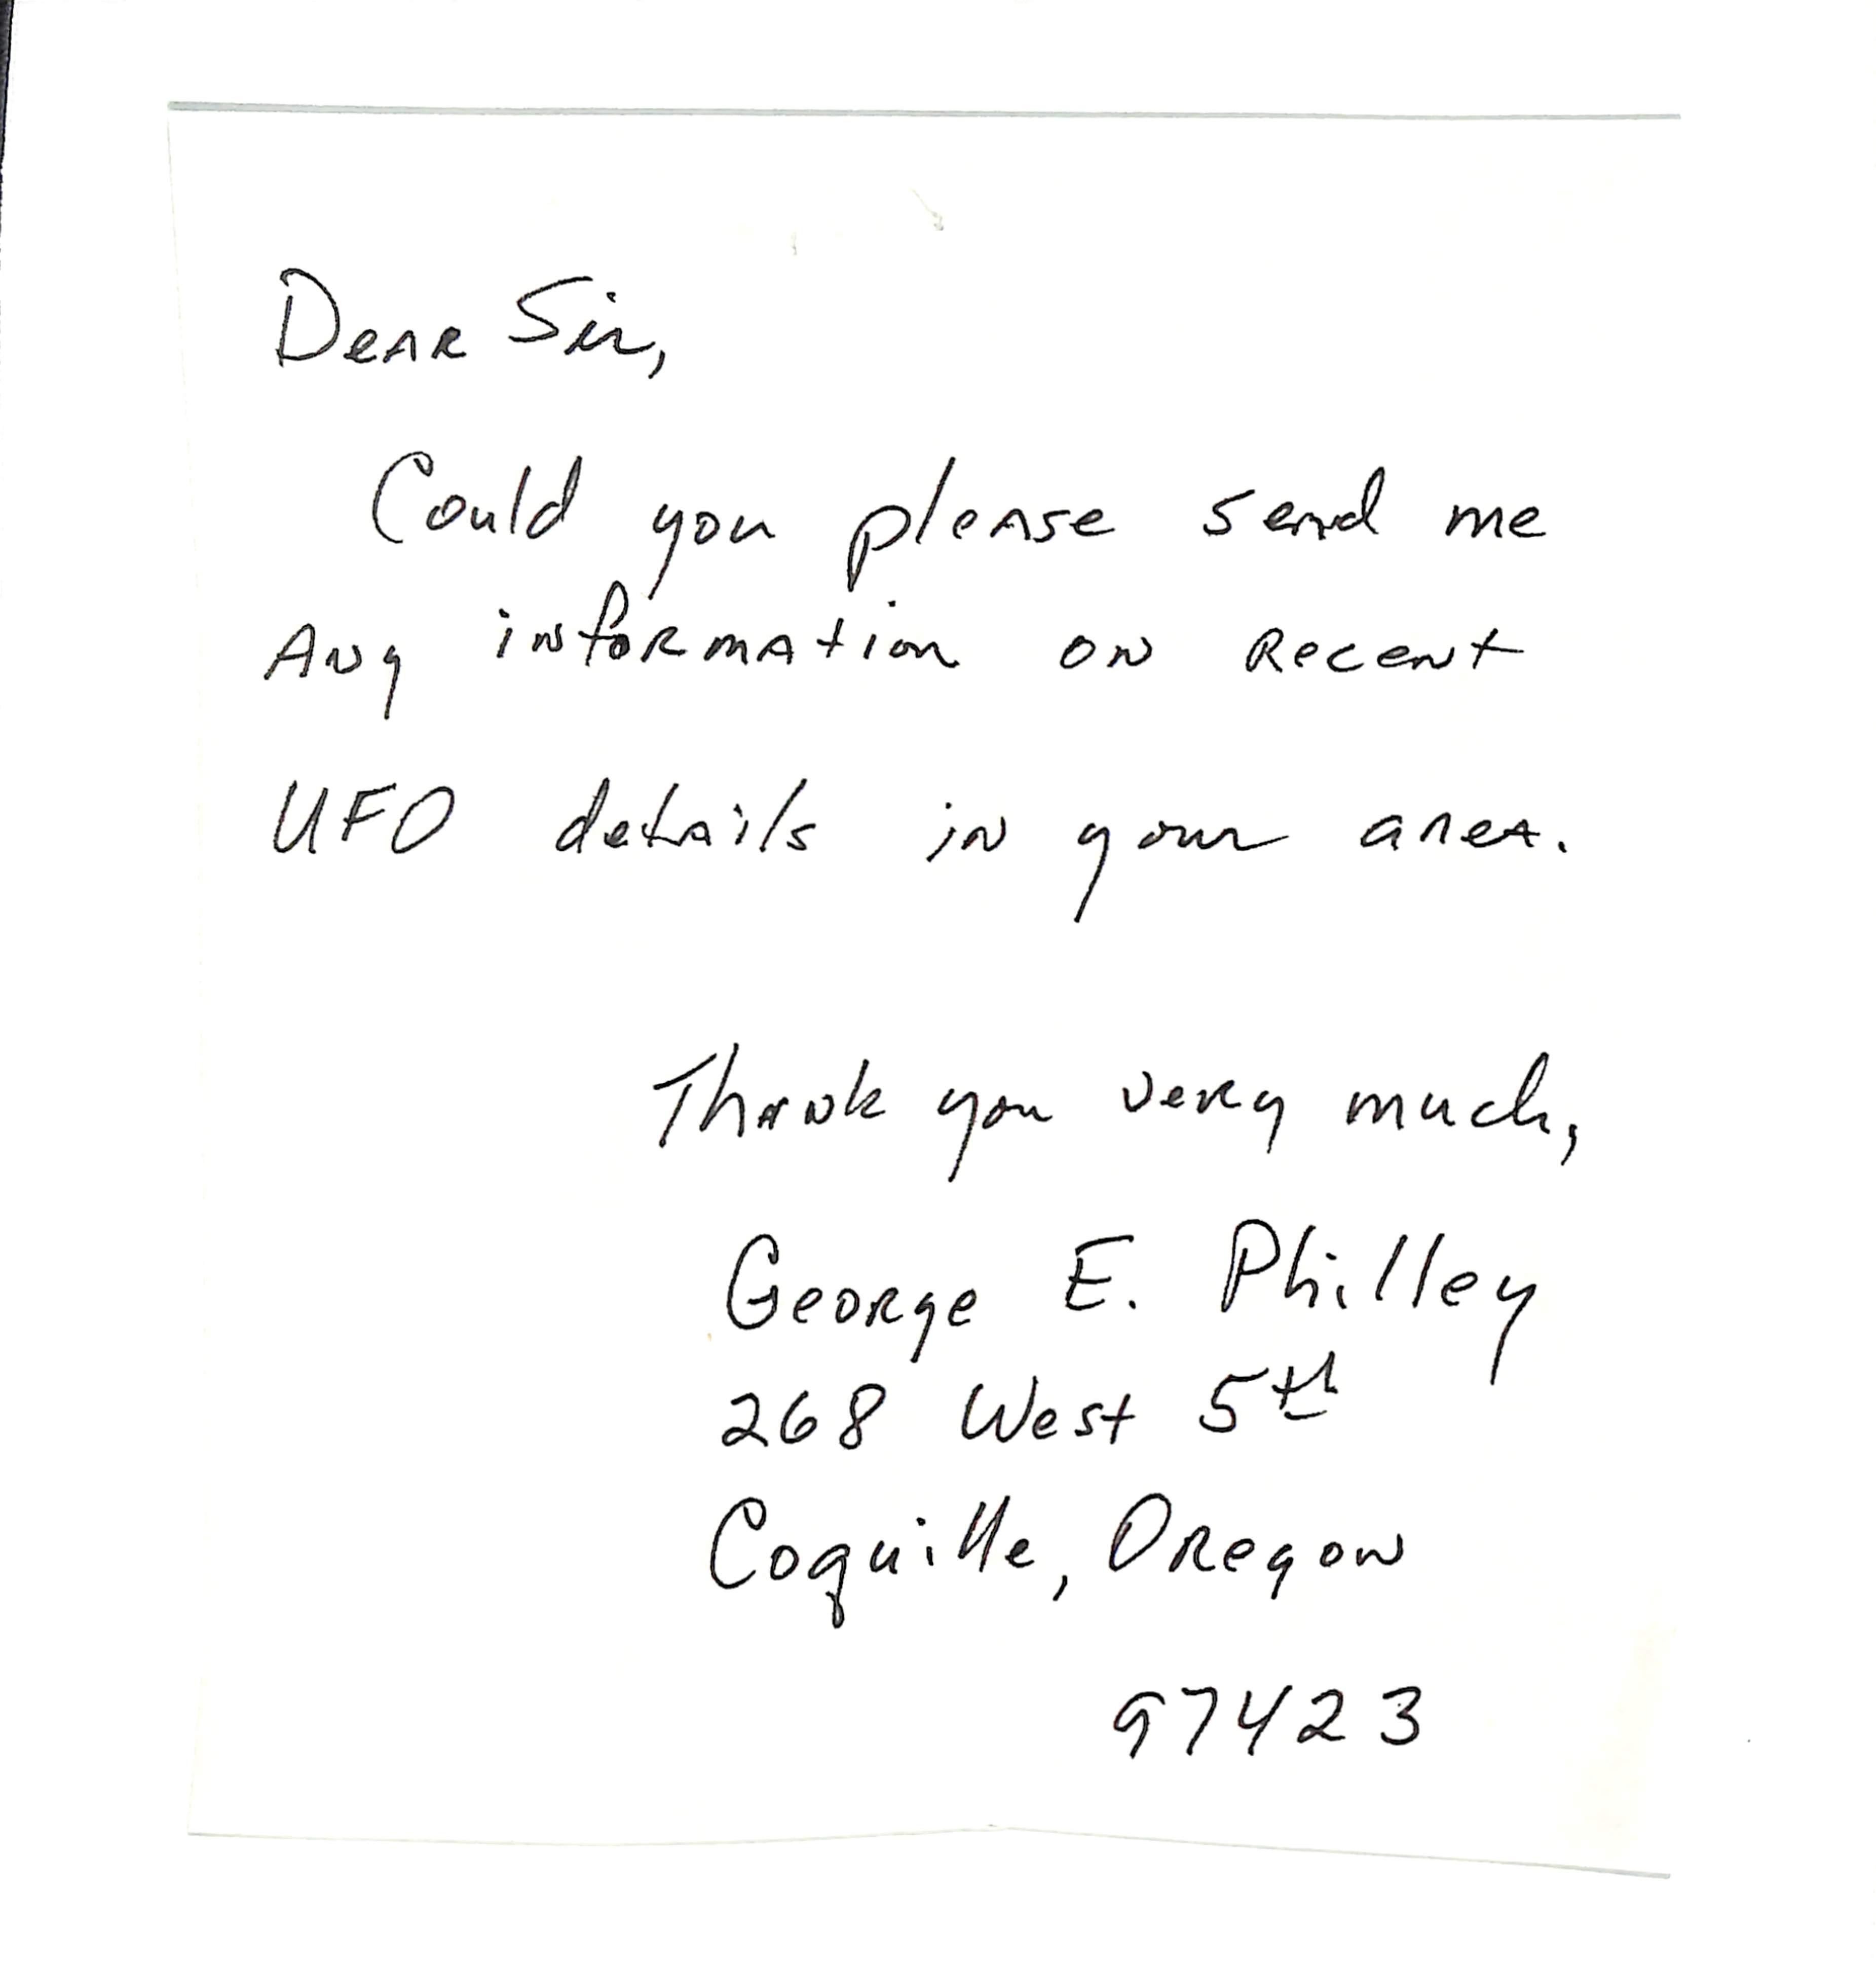 Dear Sir,
Could you please send me
Any information on Recent
UFO details in your area.
Thank you very much,
George E. Philley
268 West 5th
Coquille, Oregon
97423